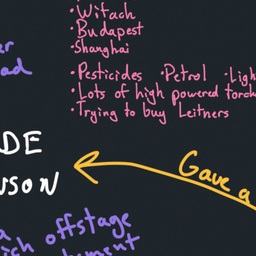 ·Witach
·Budapest
·Shanghai
·Pesticides ·Petrol ·Ligh
·Lots of high powered torch
·Trying to buy Leitners
er
ad
DE
NSON
Gave a
a
ich offstage
ument